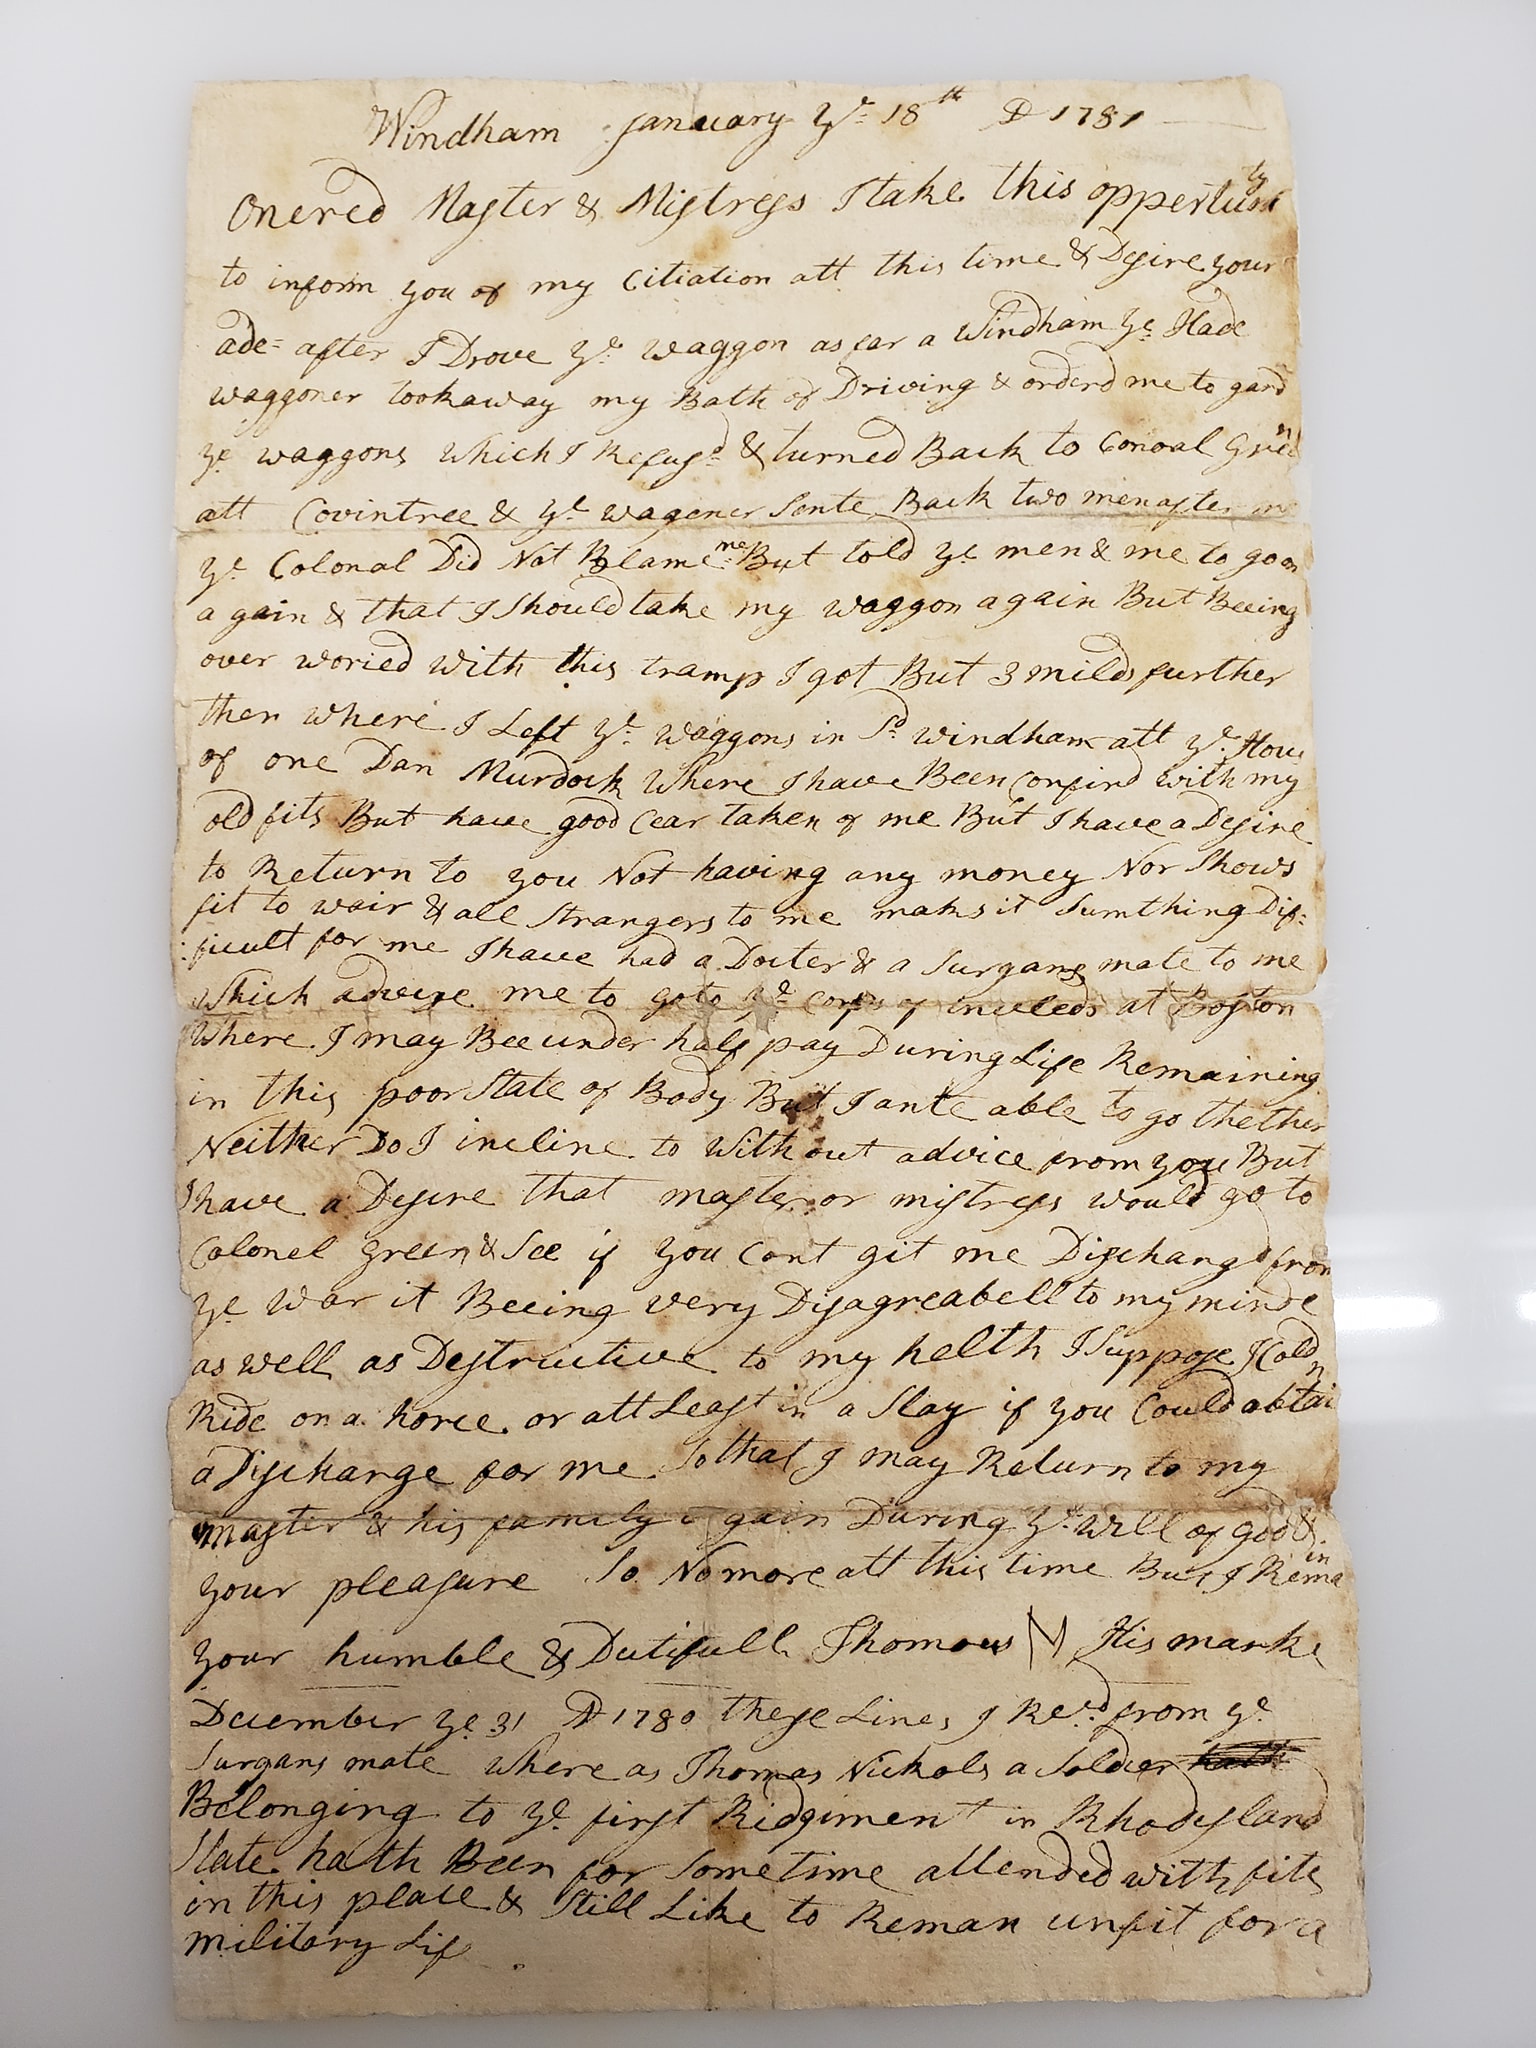 Windham January ye 18th AD 1781
Onered Master & Mistress I take this oppertunity
to inform you of my Citiation att this time & Desire your
ade= after I Drove ye waggon as far a Windham ye Hade
waggoner took away my Bath of Driving & orderd me to gard
ye waggons which I Refusd & turned Back to Conoal Green
att Covintree & ye wagener Sente Back two men after me
ye Colonal Did Not Blame me But told ye men & me to go on
a gain & that I Should take my waggon again But Beeing
over woried with this tramp I got But 3 milds further
then where I Left ye waggons in Sd windham att ye Hous
of one Dan Murdock where I have Been Confind with my
old fits But have good Cear taken of me But I have a Desire
to Return to you Not having any money Nor Shows
fit to wair & all Strangers to me maks it Sumthing Dif=
:ficult for me I have had a Docter & a Surgans mate to me
which advise me to go to ye Corps of inveleds at Boston
Where I may Bee under half pay During Life Remaining
in this poor State of Body But I ante able to go thether
Neither Do I incline to Without advice from you But
I have a Desire that master or mistress would go to
Colonel Green & See if you Cant git me Dischargd from
ye War it Beeing very Disagreabell to my minde
as well as Destructive to my helth I Suppose I Cold
Ride on a horce or att Least in a Slay if you Could obtain
a Discharge for me So that I may Return to my
master & his family a gain During ye will of god &
your pleasure So No more att this time But I Remain
your humble & Dutifull Thomas N His marke
December ye 31 AD 1780 these Lines I Recd from ye
Surgans mate where as Thomas Nichols a Soldier
Belonging to ye first Ridgiment in Rhodysland
State hath Been for Some time attended with fits
in this place & Still Like to Reman unfit for a
military Life